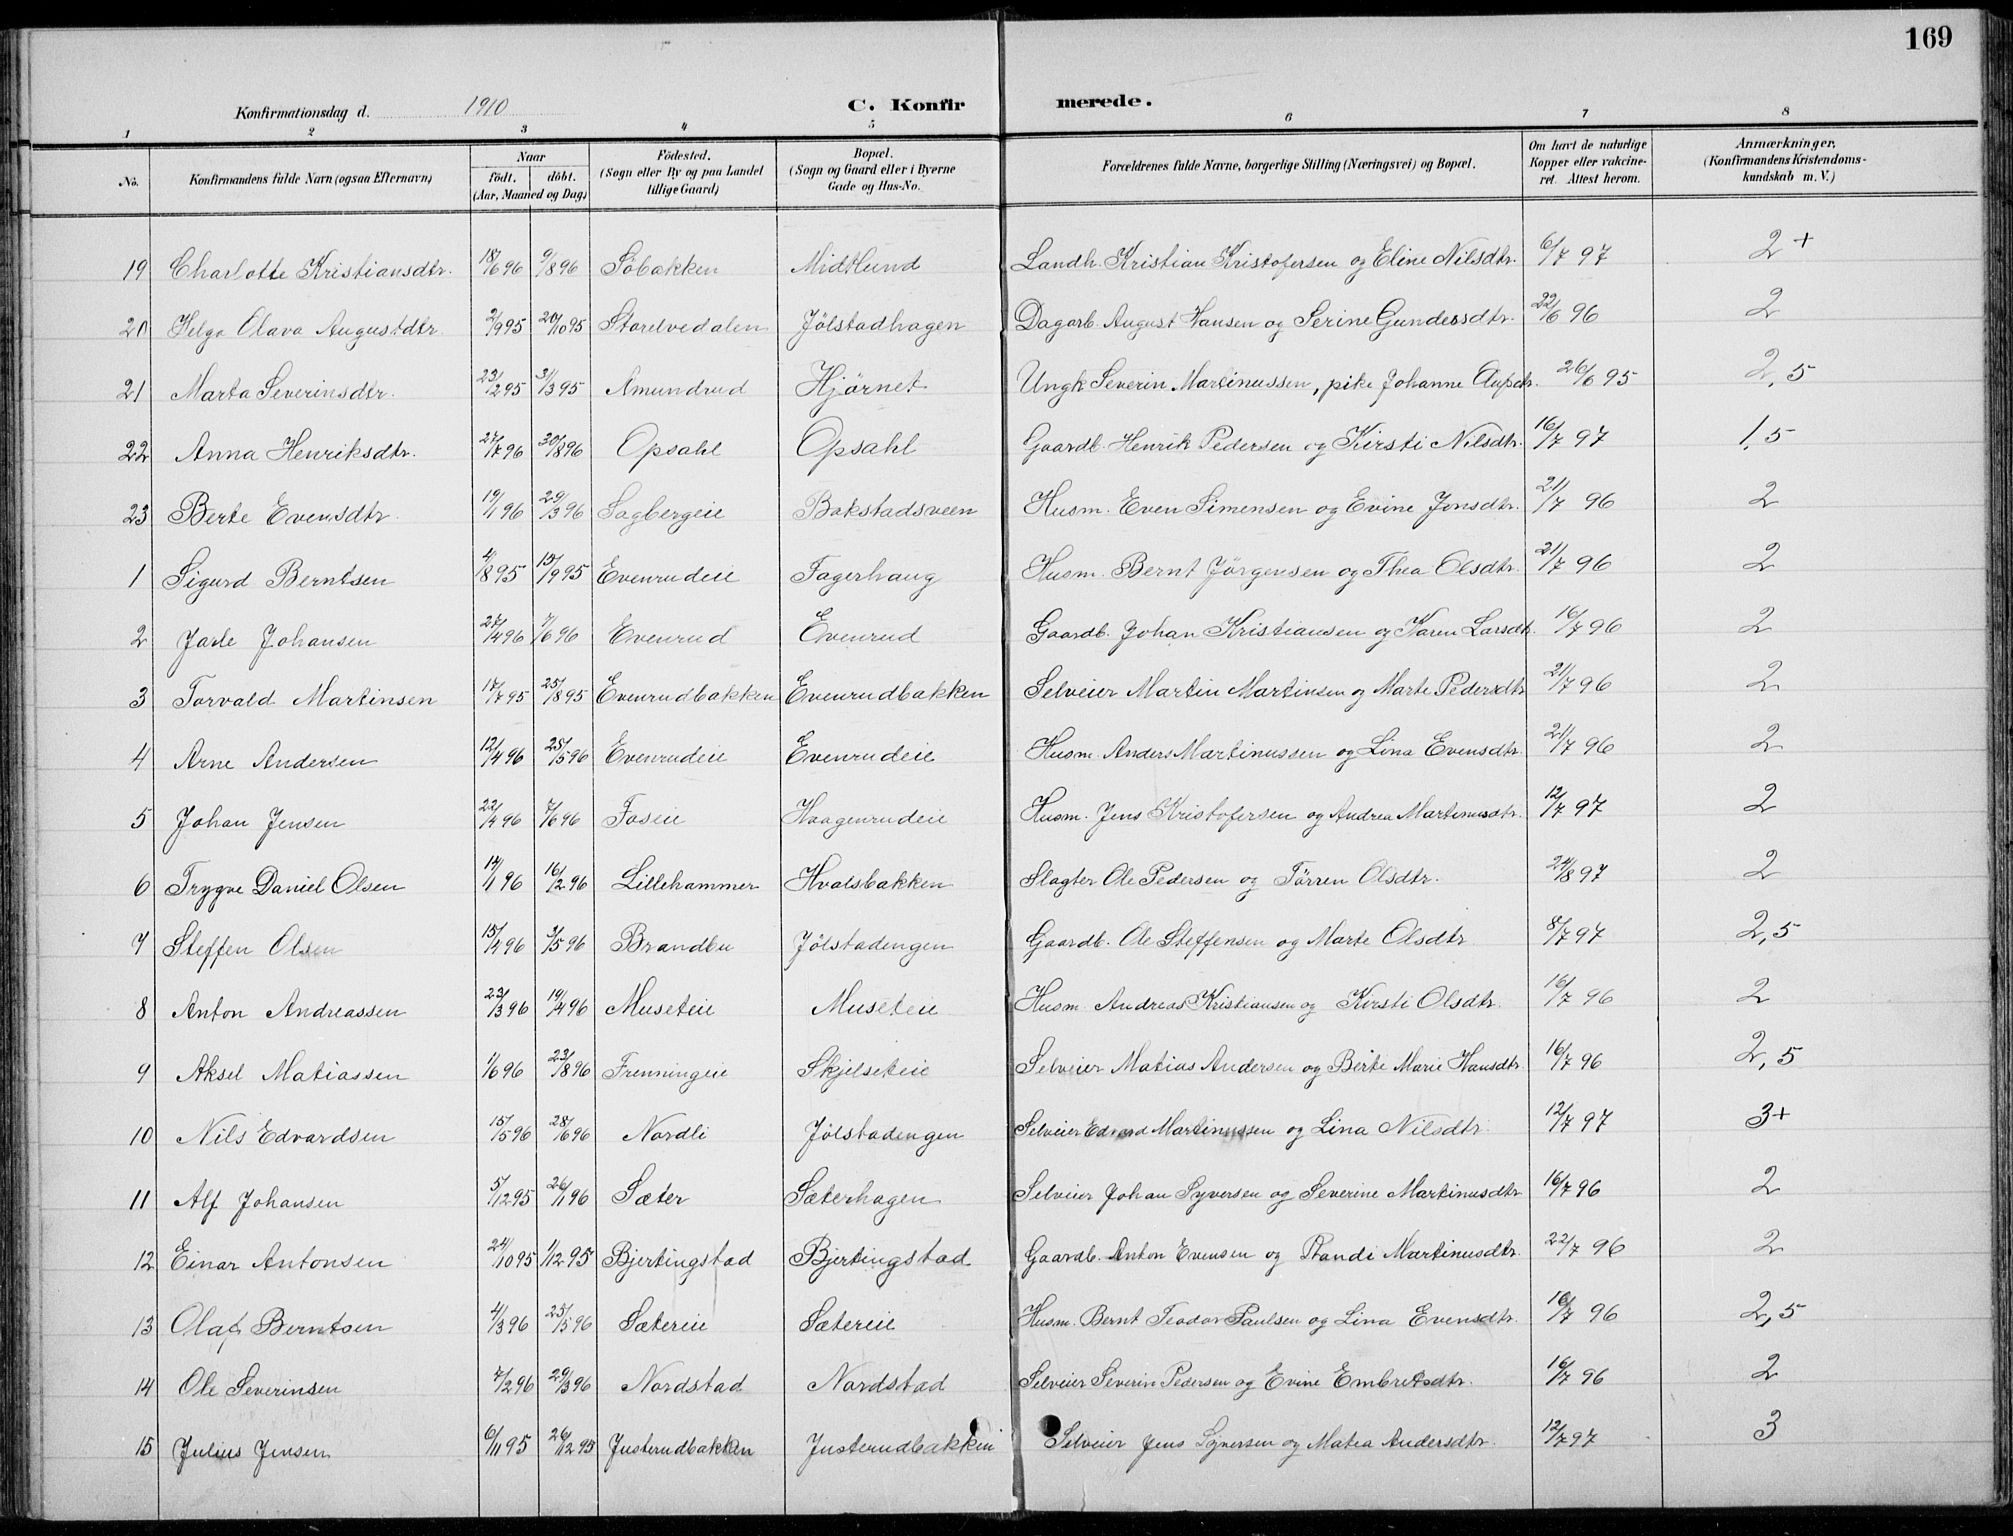 169
Konfirmationsdag d. 1910 C. Konfirmerede.
1 2 3 4 5 6 7 8
No. Konfirmandens fulde Navn (ogsaa Efternavn) Naar födt. döbt. (Aar, Maaned og Dag) Födested. (Sogn eller By og paa Landet tillige Gaard) Bopæl. (Sogn og Gaard eller i Byerne Gade og Hus-No. Forældrenes fulde Navne, borgerlige Stilling (Næringsvei) og Bopæl. Om havt de naturlige Kopper eller vakcineret. Attest herom. Anmærkninger, (Konfirmandens Kristendomskundskab m. V.)
19 Charlotte Kristiansdtr. 18/6 96 9/8 96 Söbakken Midtlund Landh. Kristian Kristofersen og Eline Nilsdtr. 6/7 97 2+
20 Helga Olava Augustdtr. 2/9 95 20/10 95 Storelvedalen Jölstadhagen Dagarb. August Hansen og Serine Gundersdtr. 22/6 96 2
21 Marta Severinsdtr. 23/2 95 31/3 95 Amundrud Hjörnet Ungk. Severin Martinussen, pike Johanne 26/6 95 2,5
22 Anna Henriksdtr. 27/7 96 30/8 96 Opsahl Opsahl Gaardb. Henrik Pedersen og Kirsti Nilsdtr. 16/7 97 1,5
23 Berte Evensdtr. 19/1 96 29/3 96 Sagbergeie Bakstadsveen Husm. Even Simensen og Evine Jonsdtr. 21/7 96 2
1 Sigurd Berntsen 4/8 95 15/9 95 Evenrudeie Fagerhaug Husm. Bernt Jörgensen og Thea Olsdtr. 21/7 96 2
2 Jarle Johansen 27/4 96 7/6 96 Evenrud Evenrud Gaardb. Johan Kristiansen og Karen Larsdtr. 16/7 96 2
3 Torvald Martinsen 17/7 95 25/8 95 Evenrudbakken Evenrudbakken Selveier Martin Martinsen og Marte Pedersdtr 21/7 96 2
4 Arne Andersen 12/4 96 25/5 96 Evenrudeie Evenrudeie Husm. Anders Martinussen og Lina Evensdtr. 21/7 96 2
5 Johan Jensen 22/4 96 7/6 96 Foseie Haagenrudeie Husm. Jens Kristofersen og Andrea Martinusdtr. 12/7 97 2
6 Trygve Daniel Olsen 14/1 96 16/2 96 Lillehammer Hvalsbakken Slagter Ole Pedersen og Törren Olsdtr. 24/8 97 2
7 Steffen Olsen 15/4 96 3/5 96 Brandbu Jölstadengen Gaardb. Ole Steffensen og Marte Olsdtr. 8/7 97 2,5
8 Anton Andreassen 23/3 96 19/4 96 Museteie Museteie Husm. Andreas Kristiansen og Kirsti Olsdtr. 16/7 96 2
9 Aksel Matiassen 1/6 96 23/8 96 Frenningeie Skjelseteie Selveier Matias Andersen og Berte Marie Hansdtr. 16/7 96 2,5
10 Nils Edvardsen 15/5 96 28/6 96 Nordli Jölstadengen Selveier Edvard Martinussen og Lina Nilsdtr. 12/7 97 3+
11 Alf Johansen 5/12 95 26/1 96 Sæter Sæterhagen Selveier Johan Syversen og Severine Martinusdtr 16/7 96 2
12 Einar Antonsen 24/10 95 1/12 95 Bjertingstad Bjertingstad Gaardb. Anton Evensen og Randi Martinusdtr. 22/7 96 2
13 Olaf Berntsen 4/3 96 25/5 96 Sætereie Sætereie Husm. Bernt Teodor Paulsen og Lina Evensdtr. 16/7 96 2,5
14 Ole Severinsen 7/2 96 29/3 96 Nordstad Nordstad Selveier Severin Pedersen og Evine Embretsdtr. 16/7 96 2
15 Julius Jensen 6/11 95 26/12 95 Justerudbakken Justerudbakken Selveier Jens Syversen og Matea Andersdtr. 12/7 97 3